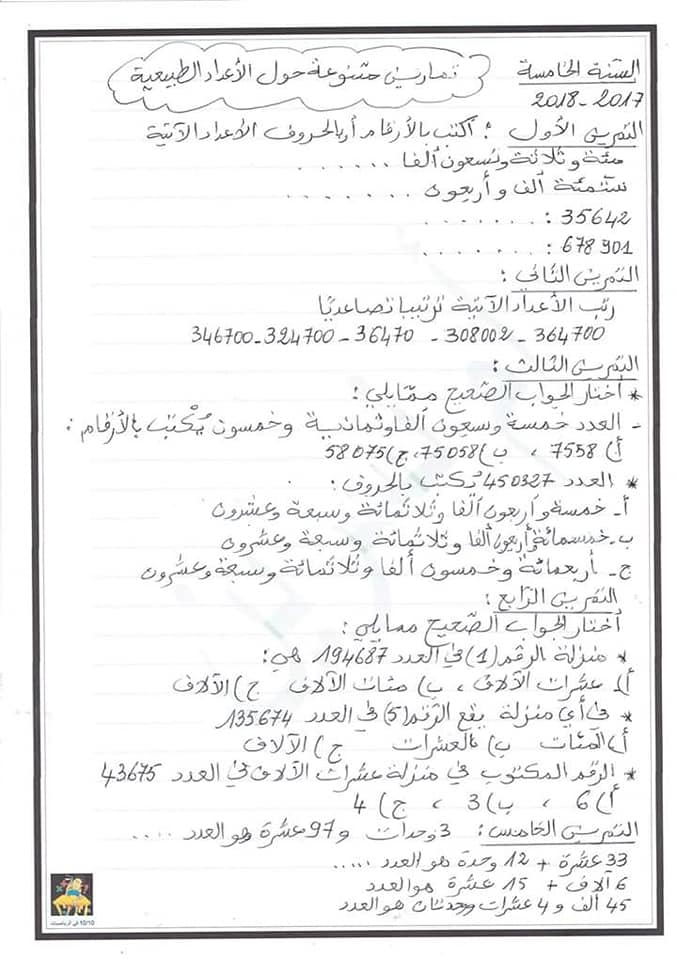 السنة الخامسة
تمارين متنوعة حول الأعداد الطبيعية
2018-2017
التمرين الأول : أكتب بالأرقام أو بالحروف الأعداد الآتية
مئة وثلاثة وتسعون ألفا .......
ستمئة ألف وأربعون ........
35642 : .......
678901 : .......
التمرين الثاني :
رتب الأعداد الآتية ترتيبا تصاعديا
364700 - 308002 - 36470 - 324700 - 346700
التمرين الثالث :
* أختار الجواب الصحيح ممايلي :
- العدد خمسة وسبعون ألفا وثمانية وخمسون يُكْتب بالأرقام :
أ) 7558 ، ب) 75058، ج) 58075
* العدد 450327 يُكتب بالحروف :
أ- خمسة وأربعون ألفا وثلاثمائة وسبعة وعشرون
ب- خمسمائة وأربعون ألفا وثلاثمائة وسبعة وعشرون
ج- أربعمائة وخمسون ألفا وثلاثمائة وسبعة وعشرون
التمرين الرابع :
أختار الجواب الصحيح ممايلي :
* منزلة الرقم (1) في العدد 194687 هي :
أ) عشرات الآلاف ، ب) مئات الآلاف ج) الآلاف
* في أي منزلة يقع الرقم (5) في العدد 135674
أ) المئات ب) العشرات ج) الآلاف
* الرقم المكتوب في منزلة عشرات الآلاف في العدد 43675
أ) 6 ، ب) 3 ، ج) 4
التمرين الخامس : 3 وحدات و 97 عشرة هو العدد ....
33 عشرة + 12 وحدة هو العدد .....
6 آلاف + 15 عشرة هو العدد
45 ألف و 4 عشرات وحدتان هو العدد
10/10 في الرياضيات